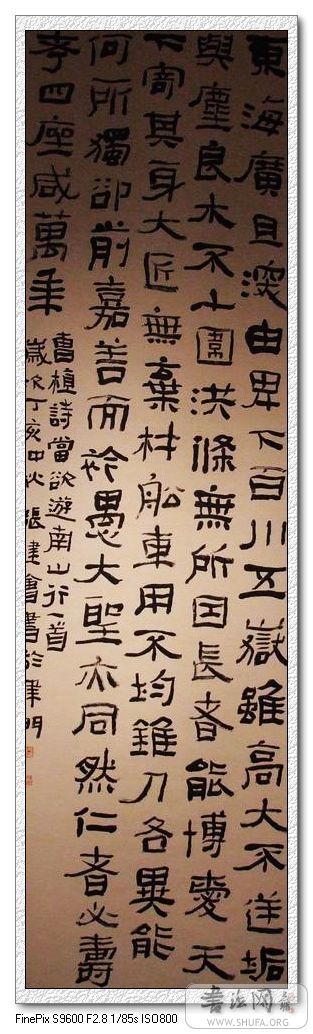 東海廣且深由卑下百川五嶽雖高大不逆垢
與塵良木不十圍洪條無所因長者能博愛天
下寄其身大匠無棄材船車用不均錐刀各異能
何所獨卻前嘉善而矜愚大聖亦同然仁者必壽
考四座咸萬年
曹植詩當欲遊南山行一首
歲次丁亥中秋張建會書於津門
书法网
WWW.SHUFA.ORG
FinePix S9600 F2.8 1/85s ISO800